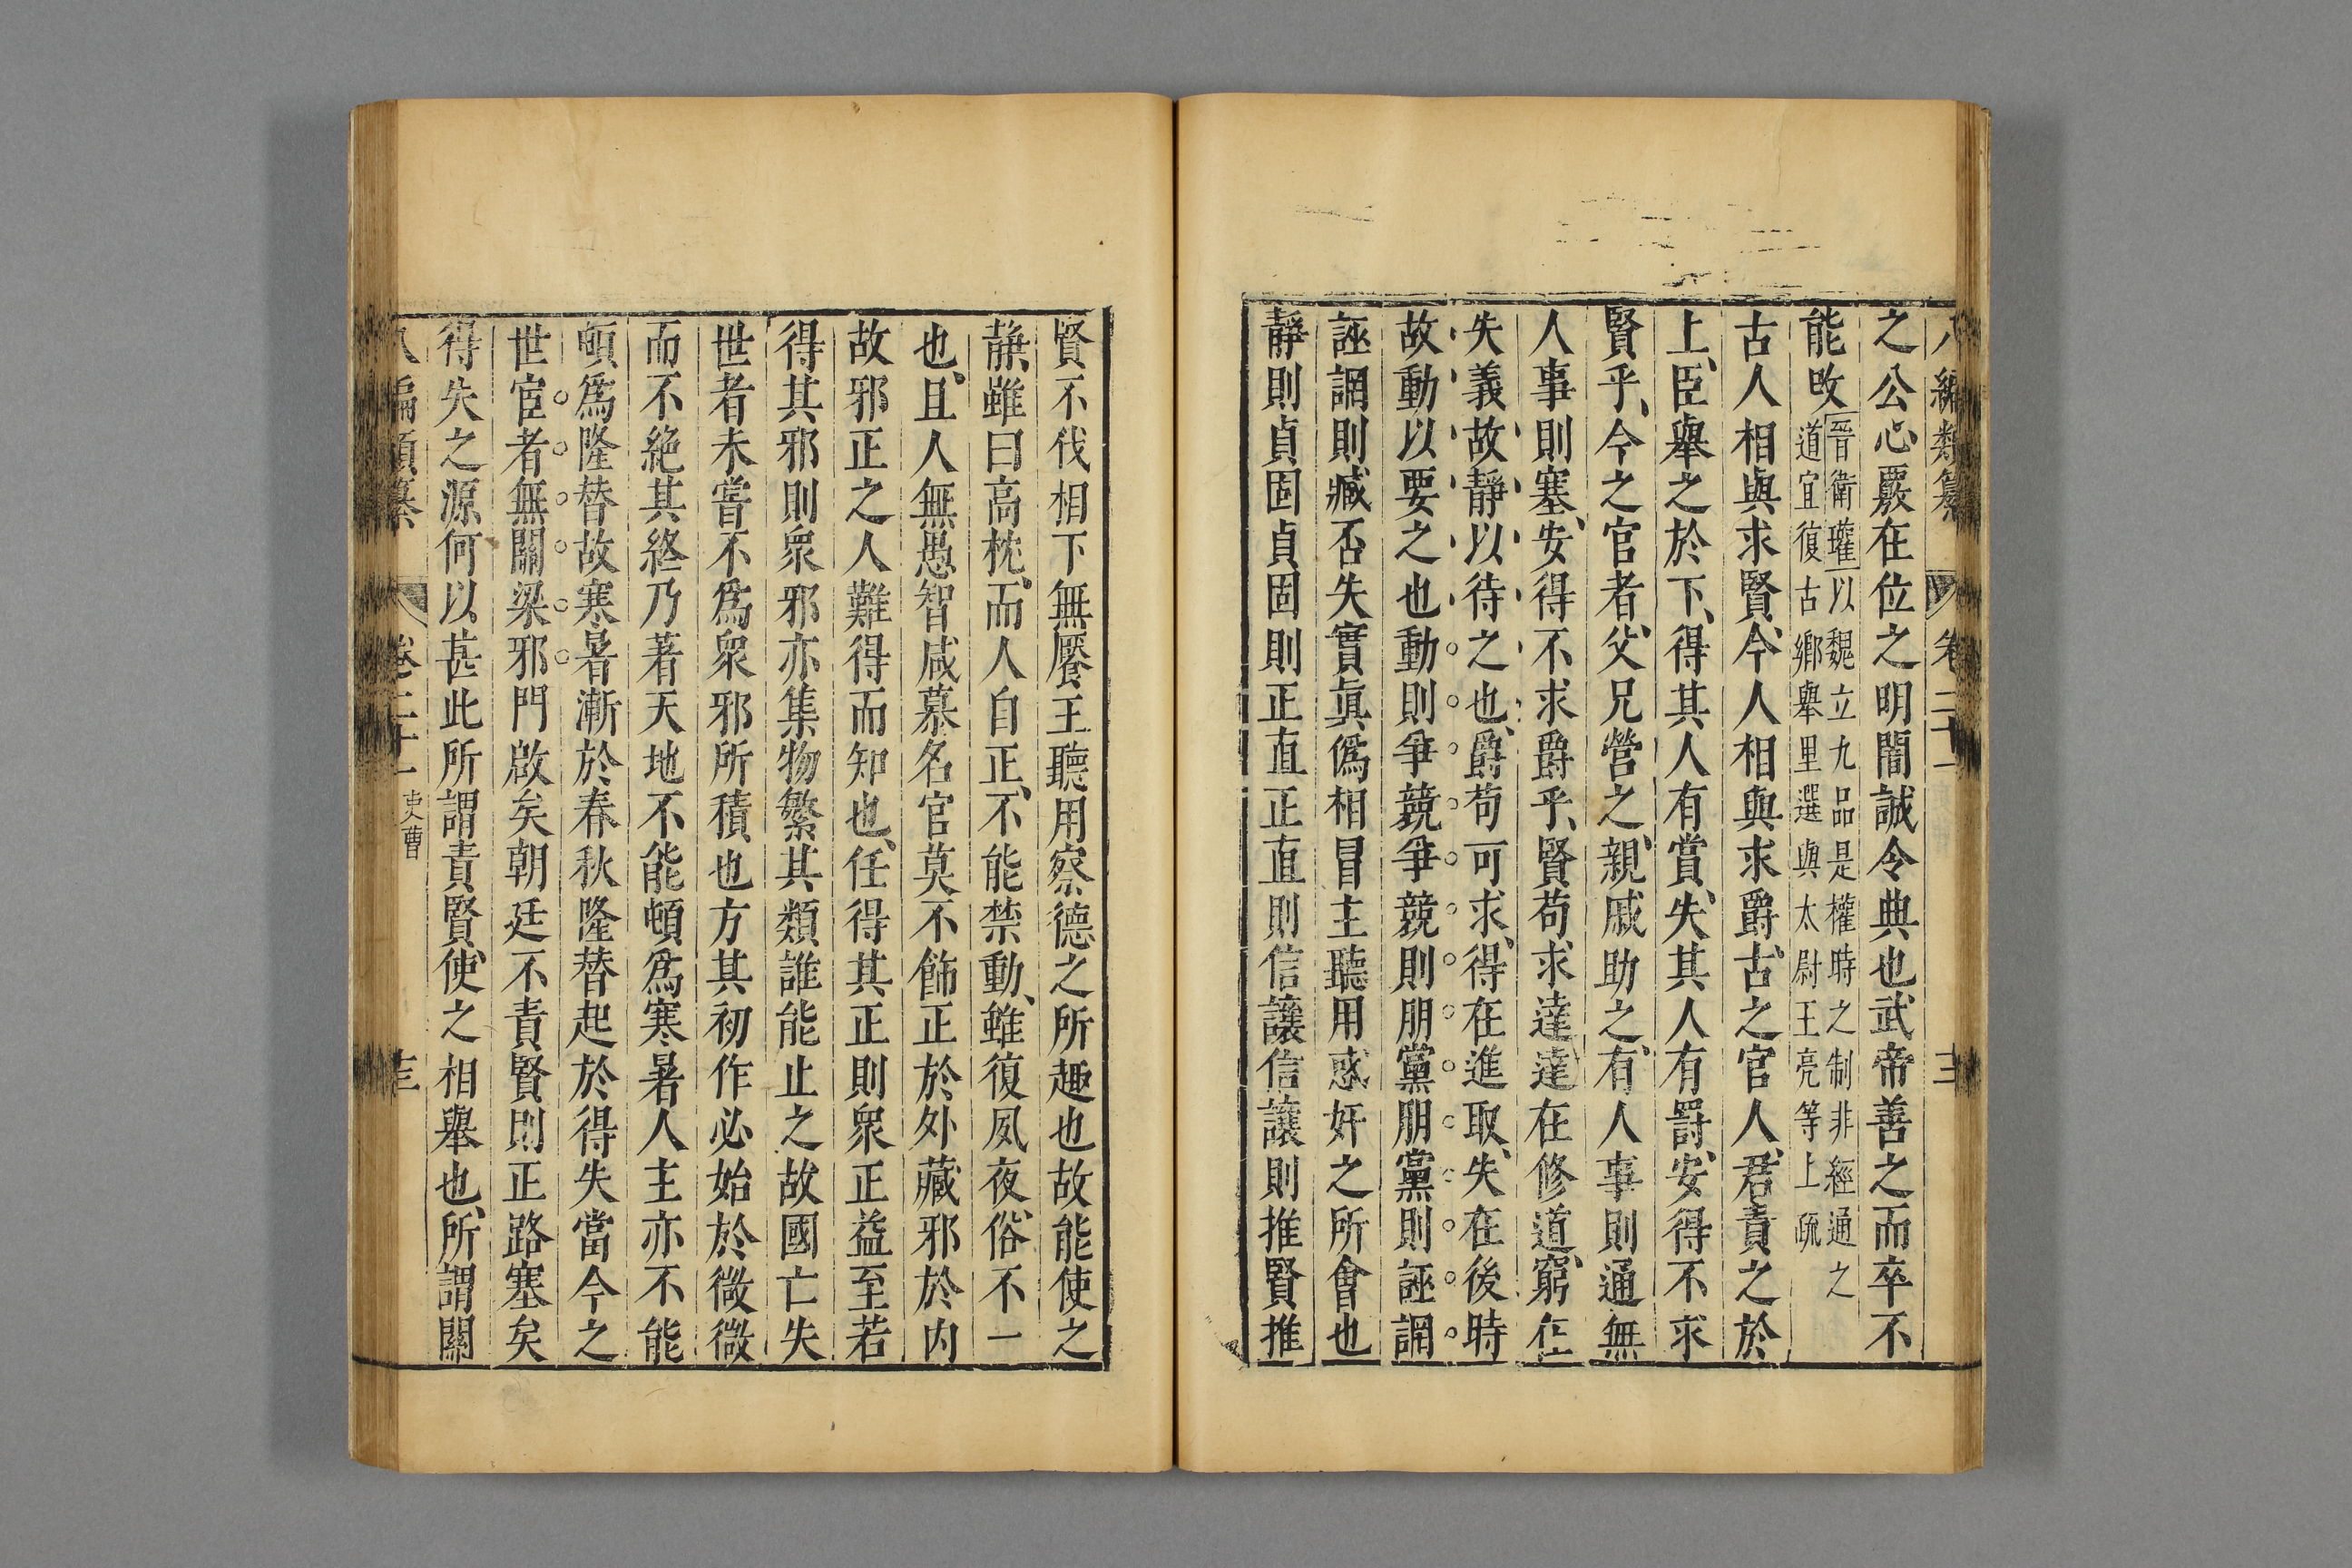 八編類纂 卷二十一 三
之公心覈在位之明闇誠令典也武帝善之而卒不
能改
晉衛瓘以魏立九品是權時之制非經通之
道宜復古鄉舉里選與太尉王亮等上疏
古人相與求賢今人相與求爵古之官人君責之於
上臣舉之於下得其人有賞失其人有罰安得不求
賢乎今之官者父兄營之親戚助之有人事則通無
人事則塞安得不求爵乎賢苟求達達在修道窮在
失義故靜以待之也爵苟可求得在進取失在後時
故動以要之也動則爭競爭競則朋黨朋黨則誣誷
誣誷則臧否失實眞僞相冒主聽用惑奸之所會也
靜則貞固貞固則正直正直則信讓信讓則推賢推
賢不伐相下無饜王聽用察德之所趣也故能使之
靜雖曰高枕而人自正不能禁動雖復夙夜俗不一
也且人無愚智咸慕名官莫不飾正於外藏邪於内
故邪正之人難得而知也任得其正則衆正益至若
得其邪則衆邪亦集物繁其類誰能止之故國亡失
世者未嘗不爲衆邪所積也方其初作必始於微微
而不絶其終乃著天地不能頓爲寒暑人主亦不能
頓爲隆替故寒暑漸於春秋隆替起於得失當今之
世宦者無關梁邪門啟矣朝廷不責賢則正路塞矣
得失之源何以甚此所謂責賢使之相舉也所謂關
八編類纂 卷二十一 吏曹 三